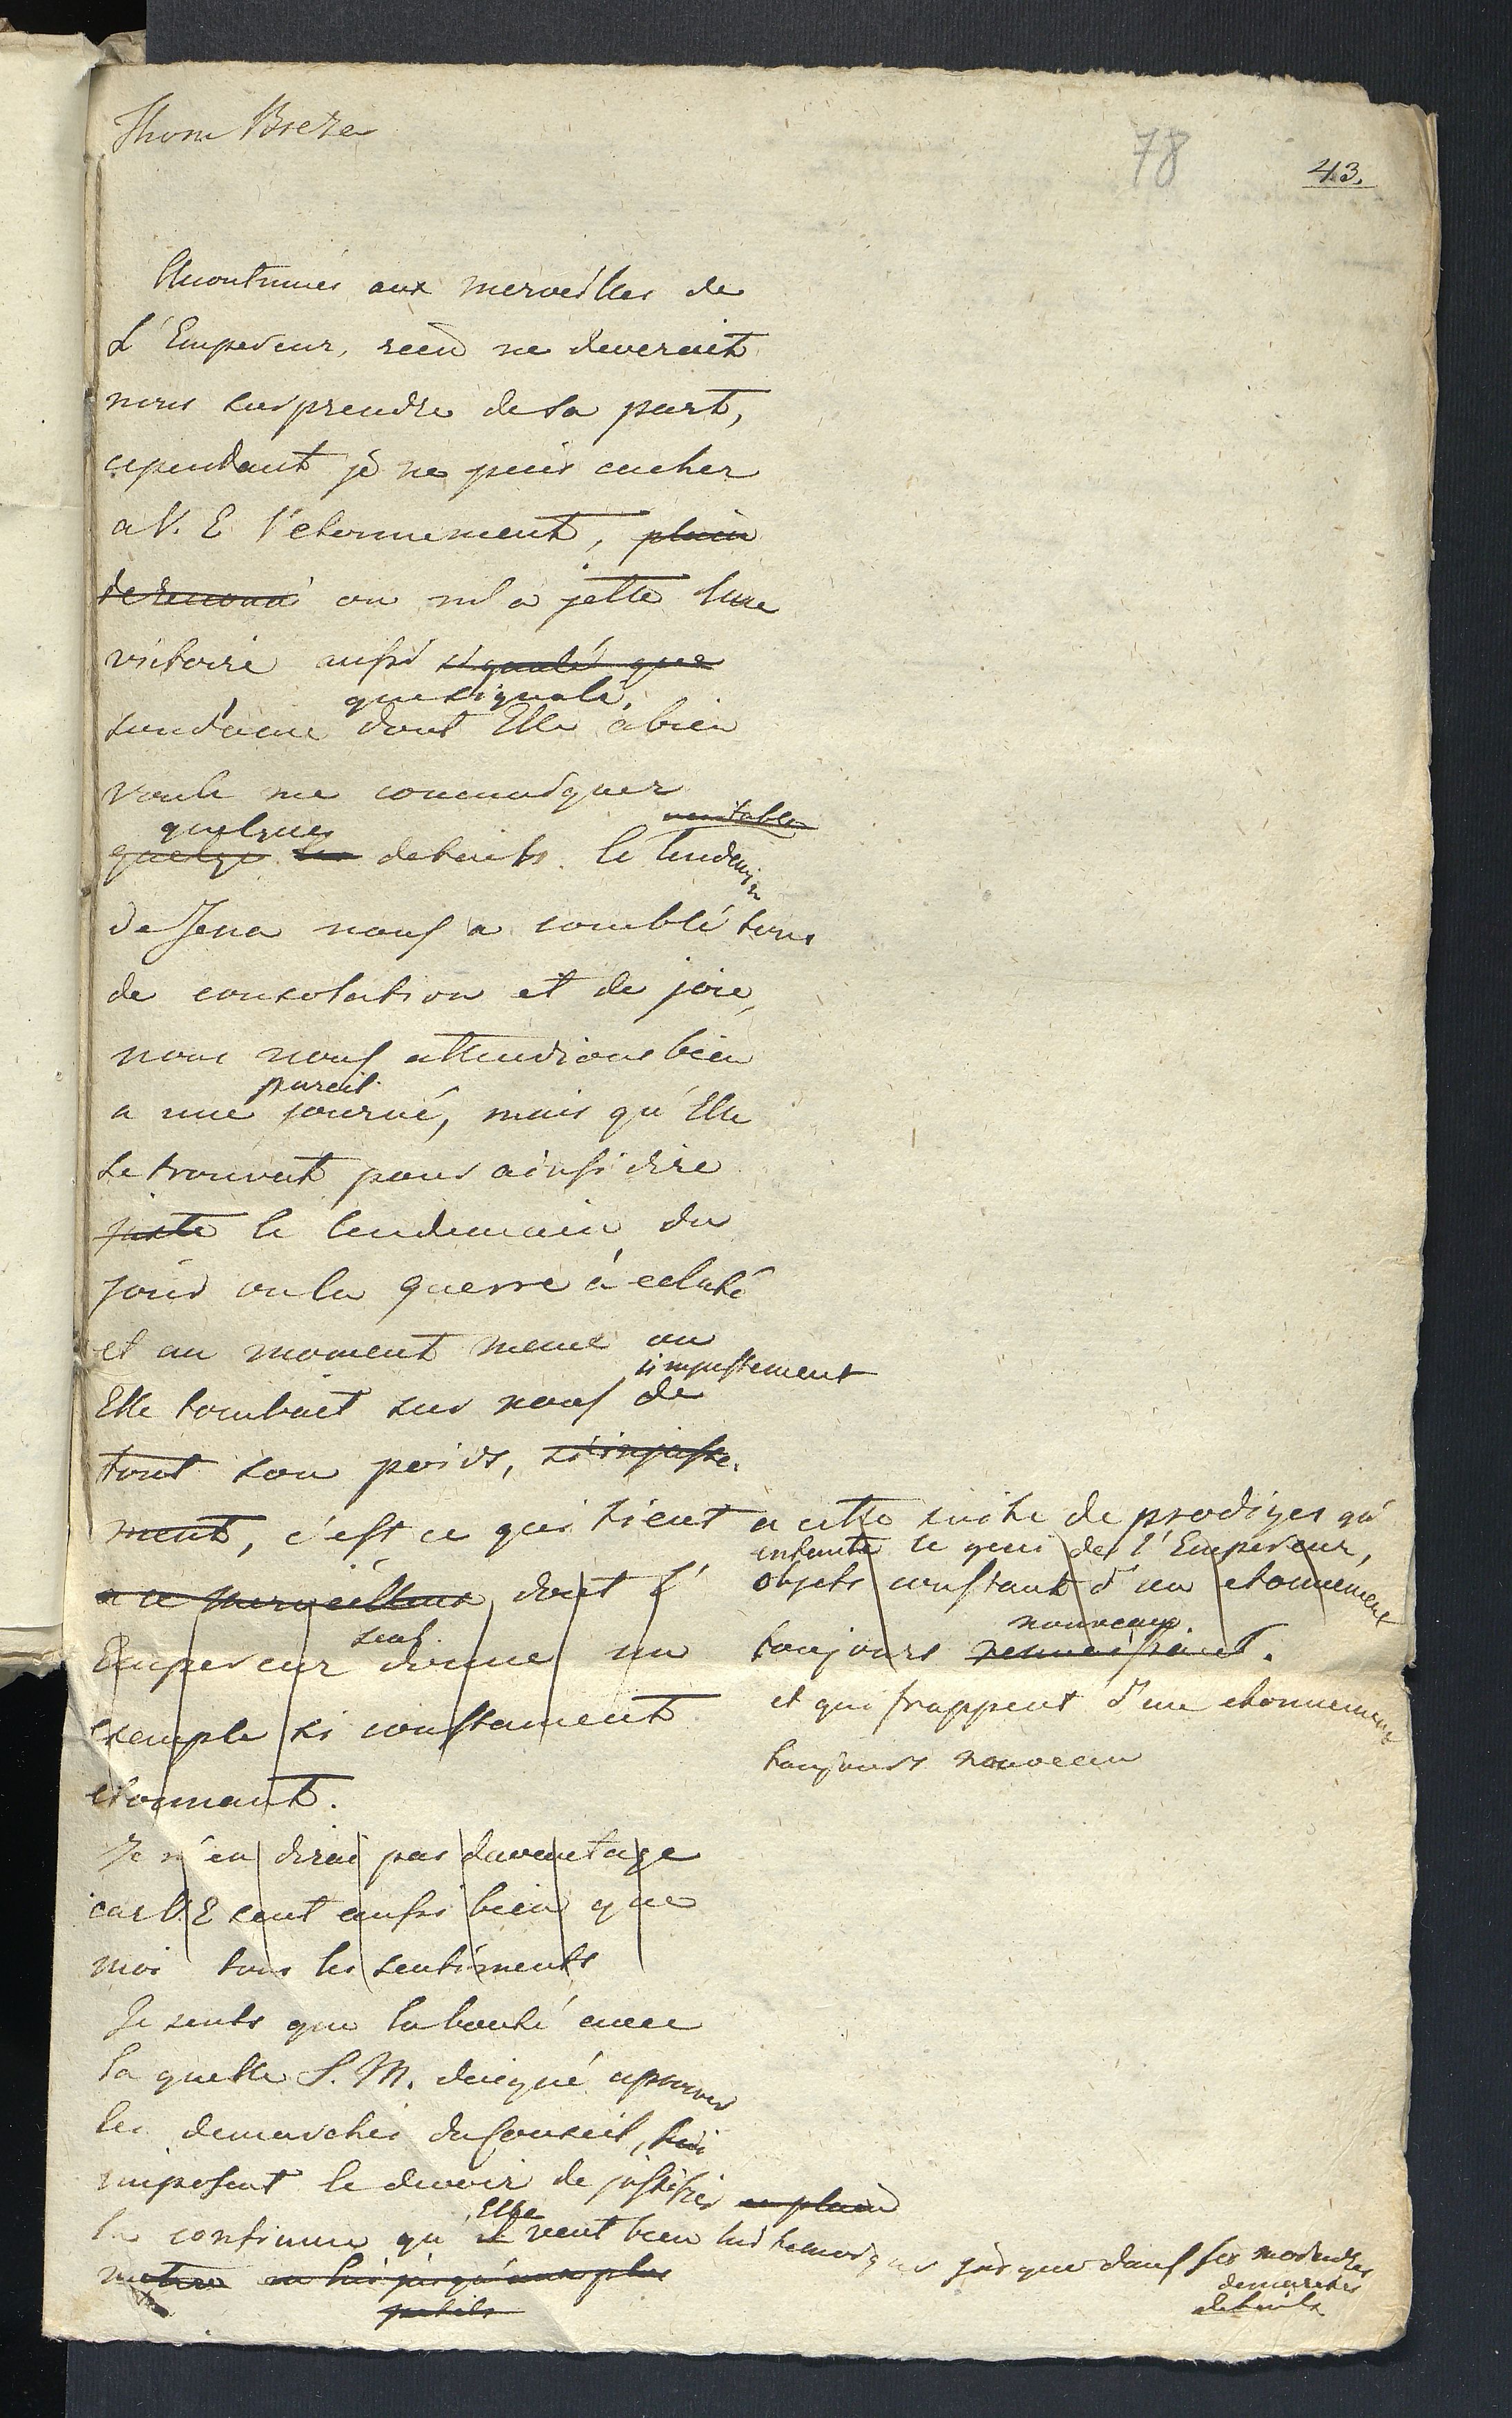 Thom Breza
78
43.
Accoutumés aux merveilles de
L'Empereur, rien ne deverait
nous surprendre de sa part,
cependant je ne puis cacher
a V. E l'etonnement, plein
ou m'a jetté Une
victoire aussi signalé que
que signalé,
soudaine dont Elle a bien
voulu me communiquer
quelques veritable
quelqe les details. le lendemain
de Jena nous a comblé tous
de consolation et de joie,
nous nous attendions bien
pareil
a une journé, mais qu'Elle
se trouvat pour ainsi dire
juste le lendemain du
jour ou la guerre à eclaté
et au moment meme ou
si injustement
Elle tombait sur nous de
tout son poids, si injuste-
ment, c'est ce qui tient a cette suite de prodiges qu'
enfante le genie de l'Empereur,
a ce merveilleux, dont l' objets constant d'un etonnement
seul nouveau
Empereur donne un toujours renaissant.
exemple si constament et qui frappent d'une etonnement
etonnant. toujours nouveau
Je n'en dirai pas davantage
car V. E sent aussi bien que
moi tous les sentiments
Je sents que la bonté avec
la quelle S. M. daigné aprouver
les demarches du Conseil, lui
imposent le devoir de justifier en plein
Elle
la confiance qu'il veut bien lui temoigner jusque dans ses moindres
demarches
mettre en lui jusqu'aux plus
petits details